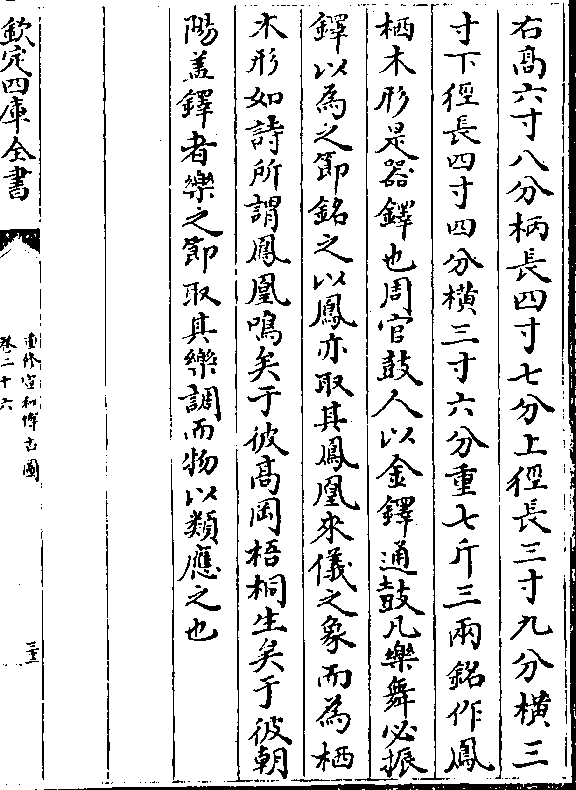 右髙六寸八分柄長四寸七分上徑長三寸九分横三
寸下徑長四寸四分横三寸六分重七斤三兩銘作鳳
栖木形是器鐸也周官鼓人以金鐸通鼓凡樂舞必振
鐸以為之節銘之以鳳亦取其鳳凰來儀之象而為栖
木形如詩所謂鳳凰鳴矣于彼髙岡梧桐生矣于彼朝
陽盖鐸者樂之節取其樂調而物以類應之也
欽定四庫全書
重修宣和博古圖
卷二十六